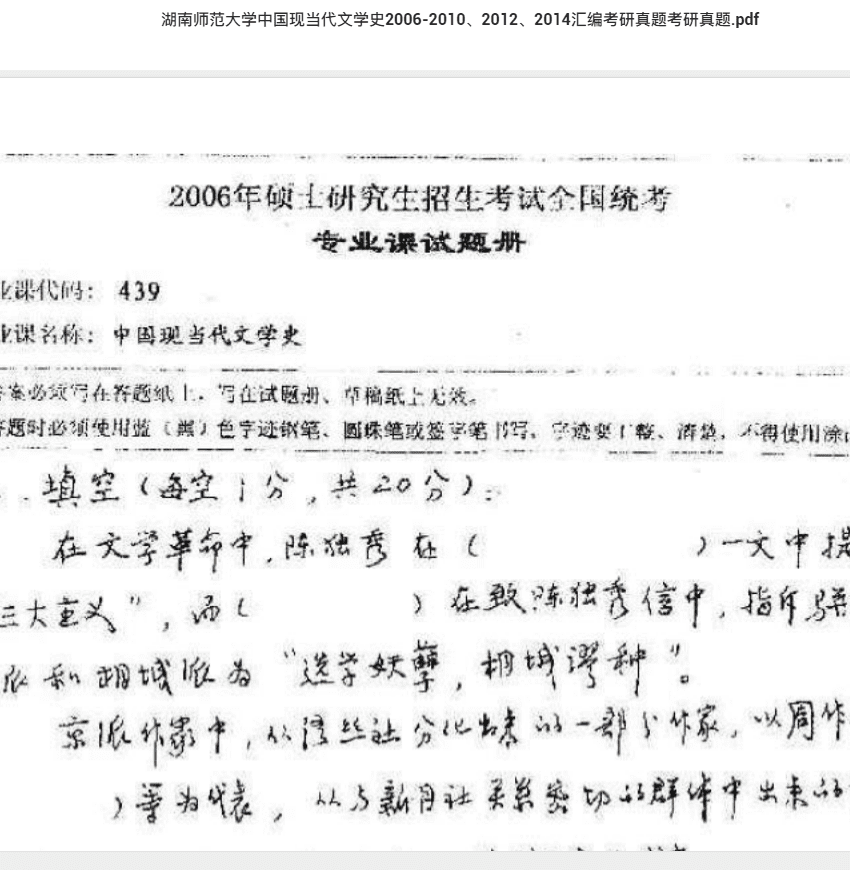 湖南师范大学中国现当代文学史2006-2010、2012、2014汇编考研真题考研真题.pdf
2006年硕士研究生招生考试全国统考
专业课试题册
业课代码： 439
业课名称：中国现当代文学史
答案必须写在答题纸上，写在试题册、草稿纸上无效。
答题时必须使用蓝（黑）色字迹钢笔、圆珠笔或签字笔书写，字迹要工整、清楚，不得使用涂
填空（每空1分，共20分）：
在文学革命中，陈独秀在（ ）一文中提
三大主义”，而（ ）在致陈独秀信中，指斥骈
派和桐城派为“选学妖孽，桐城谬种”。
京派作家中，从语丝社分化出来的一部分作家，以周作
）等为代表，从与新月社关系密切的群体中出来的